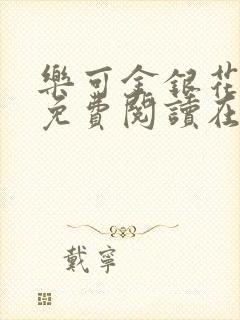 樂可金銀花
免費閱讀在
戴寧